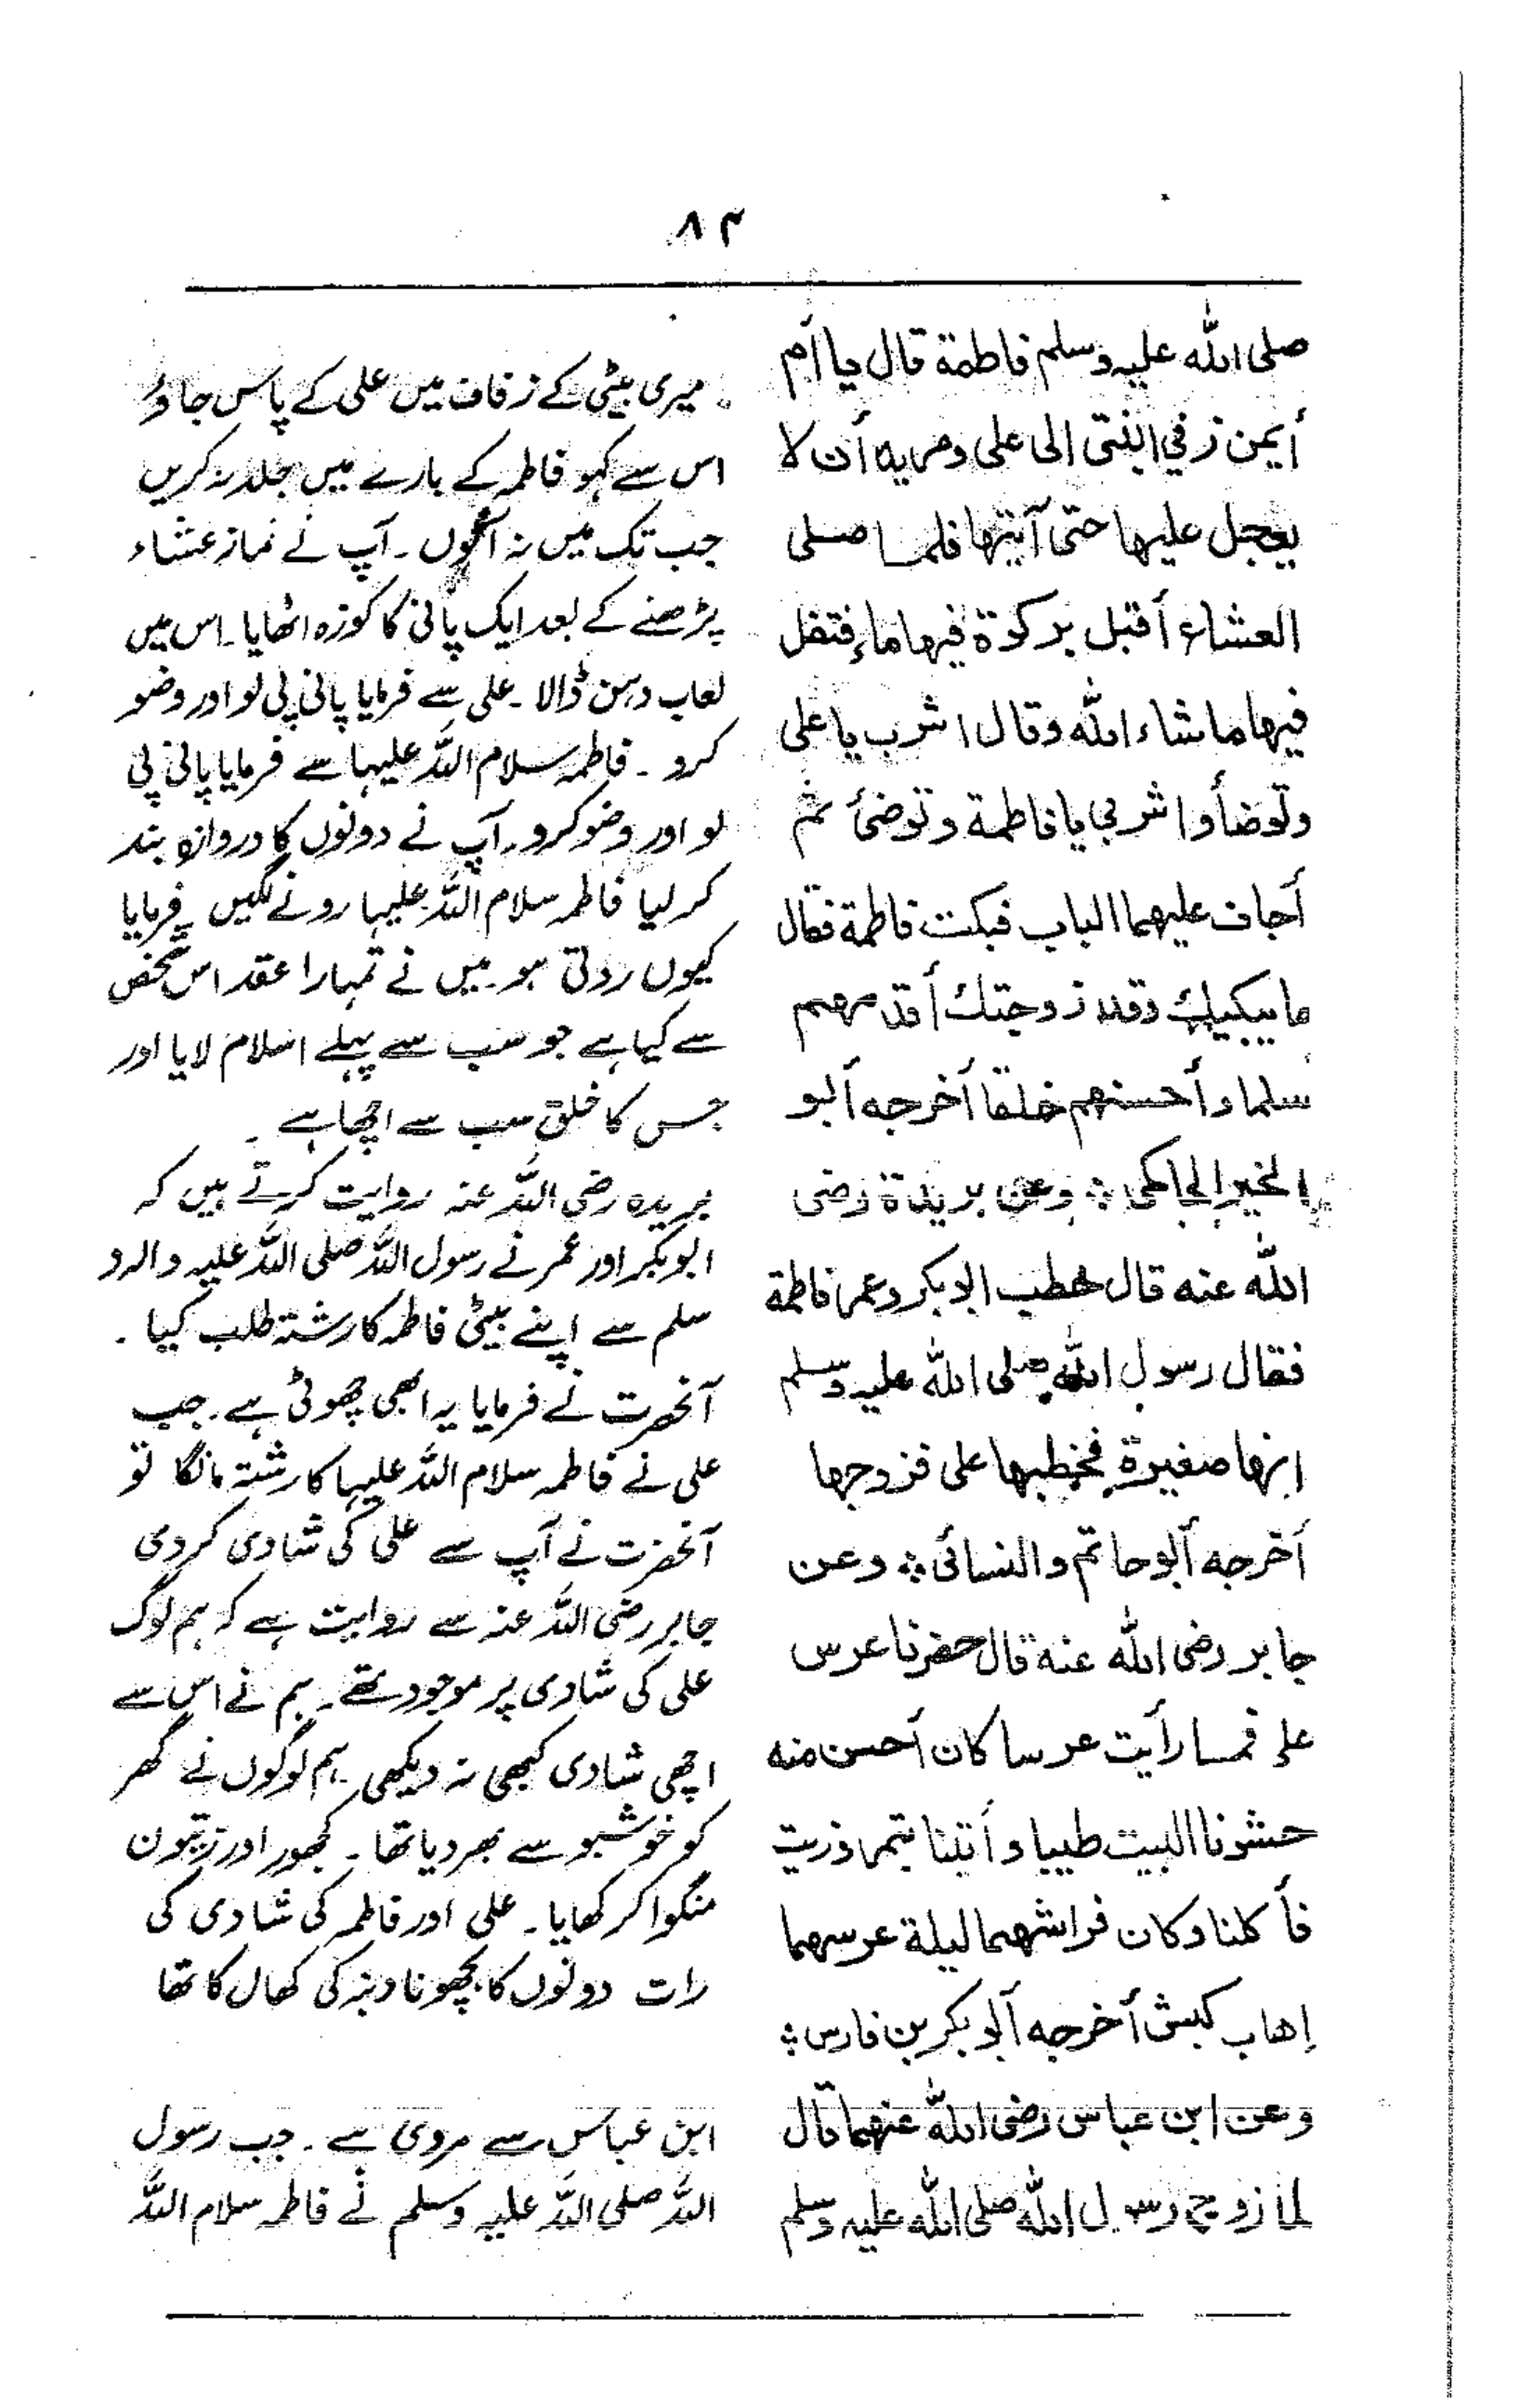 ۸۴
صلی الله علیه وسلم فاطمة قال یا أم
أیمن زفي ابنتی الی علی ومریه أن لا
یعجل علیها حتی آتیها فلما صلی
العشاء أقبل برکوة فیها ماء فتفل
فیها ما شاء الله وقال اشرب یا علی
وتوضأ واشربي یا فاطمة وتوضئ ثم
أجاف علیهما الباب فبکت فاطمة فقال
ما یبکیك وقد زوجتك أقدمهم
سلما وأحسنهم خلقا أخرجه أبو
الخیر الحاکمی ؞ وعن بریدة رضی
الله عنه قال خطب ابو بکر وعمر فاطمة
فقال رسول الله صلی الله علیه وسلم
إنها صغیرة فخطبها علی فزوجها
أخرجه أبو حاتم والنسائی ؞ وعن
جابر رضی الله عنه قال حضرنا عرس
علی فما رأیت عرسا کان أحسن منه
حشونا البیت طیبا وأتینا بتمر وزیت
فأکلنا وکان فراشهما لیلة عرسهما
إهاب کبش أخرجه أبو بکر بن فارس ؞
وعن ابن عباس رضی الله عنهما قال
لما زوج رسول الله صلی الله علیه وسلم
میری بیٹی کے زفاف میں علی کے پاس جاؤ
اس سے کہو فاطمہ کے بارے میں جلد نہ کریں
جب تک میں نہ آؤں۔ آپ نے نماز عشاء
پڑھنے کے بعد ایک پانی کا کوزہ اٹھایا۔ اس میں
لعاب دہن ڈالا۔ علی سے فرمایا پانی پی لو اور وضو
کرو۔ فاطمہ سلام اللہ علیہا سے فرمایا پانی پی
لو اور وضو کرو۔ آپ نے دونوں کا دروازہ بند
کر لیا فاطمہ سلام اللہ علیہا رونے لگیں۔ فرمایا
کیوں روتی ہو۔ میں نے تمہارا عقد اس شخص
سے کیا ہے جو سب سے پہلے اسلام لایا اور
جس کا خلق سب سے اچھا ہے۔
بریدہ رضی اللہ عنہ روایت کرتے ہیں کہ
ابوبکر اور عمر نے رسول اللہ صلی اللہ علیہ والہ و
سلم سے اپنے بیٹی فاطمہ کا رشتہ طلب کیا۔
آنحضرت نے فرمایا یہ ابھی چھوٹی ہے۔ جب
علی نے فاطمہ سلام اللہ علیہا کا رشتہ مانگا تو
آنحضرت نے آپ سے علی کی شادی کر دی
جابر رضی اللہ عنہ سے روایت ہے کہ ہم لوگ
علی کی شادی پر موجود تھے۔ ہم نے اس سے
اچھی شادی کبھی نہ دیکھی۔ ہم لوگوں نے گھر
کو خوشبو سے بھر دیا تھا۔ کھجور اور زیتون
منگوا کر کھایا۔ علی اور فاطمہ کی شادی کی
رات دونوں کا بچھونا دنبہ کی کھال کا تھا
ابن عباس سے مروی ہے۔ جب رسول
اللہ صلی اللہ علیہ وسلم نے فاطمہ سلام اللہ